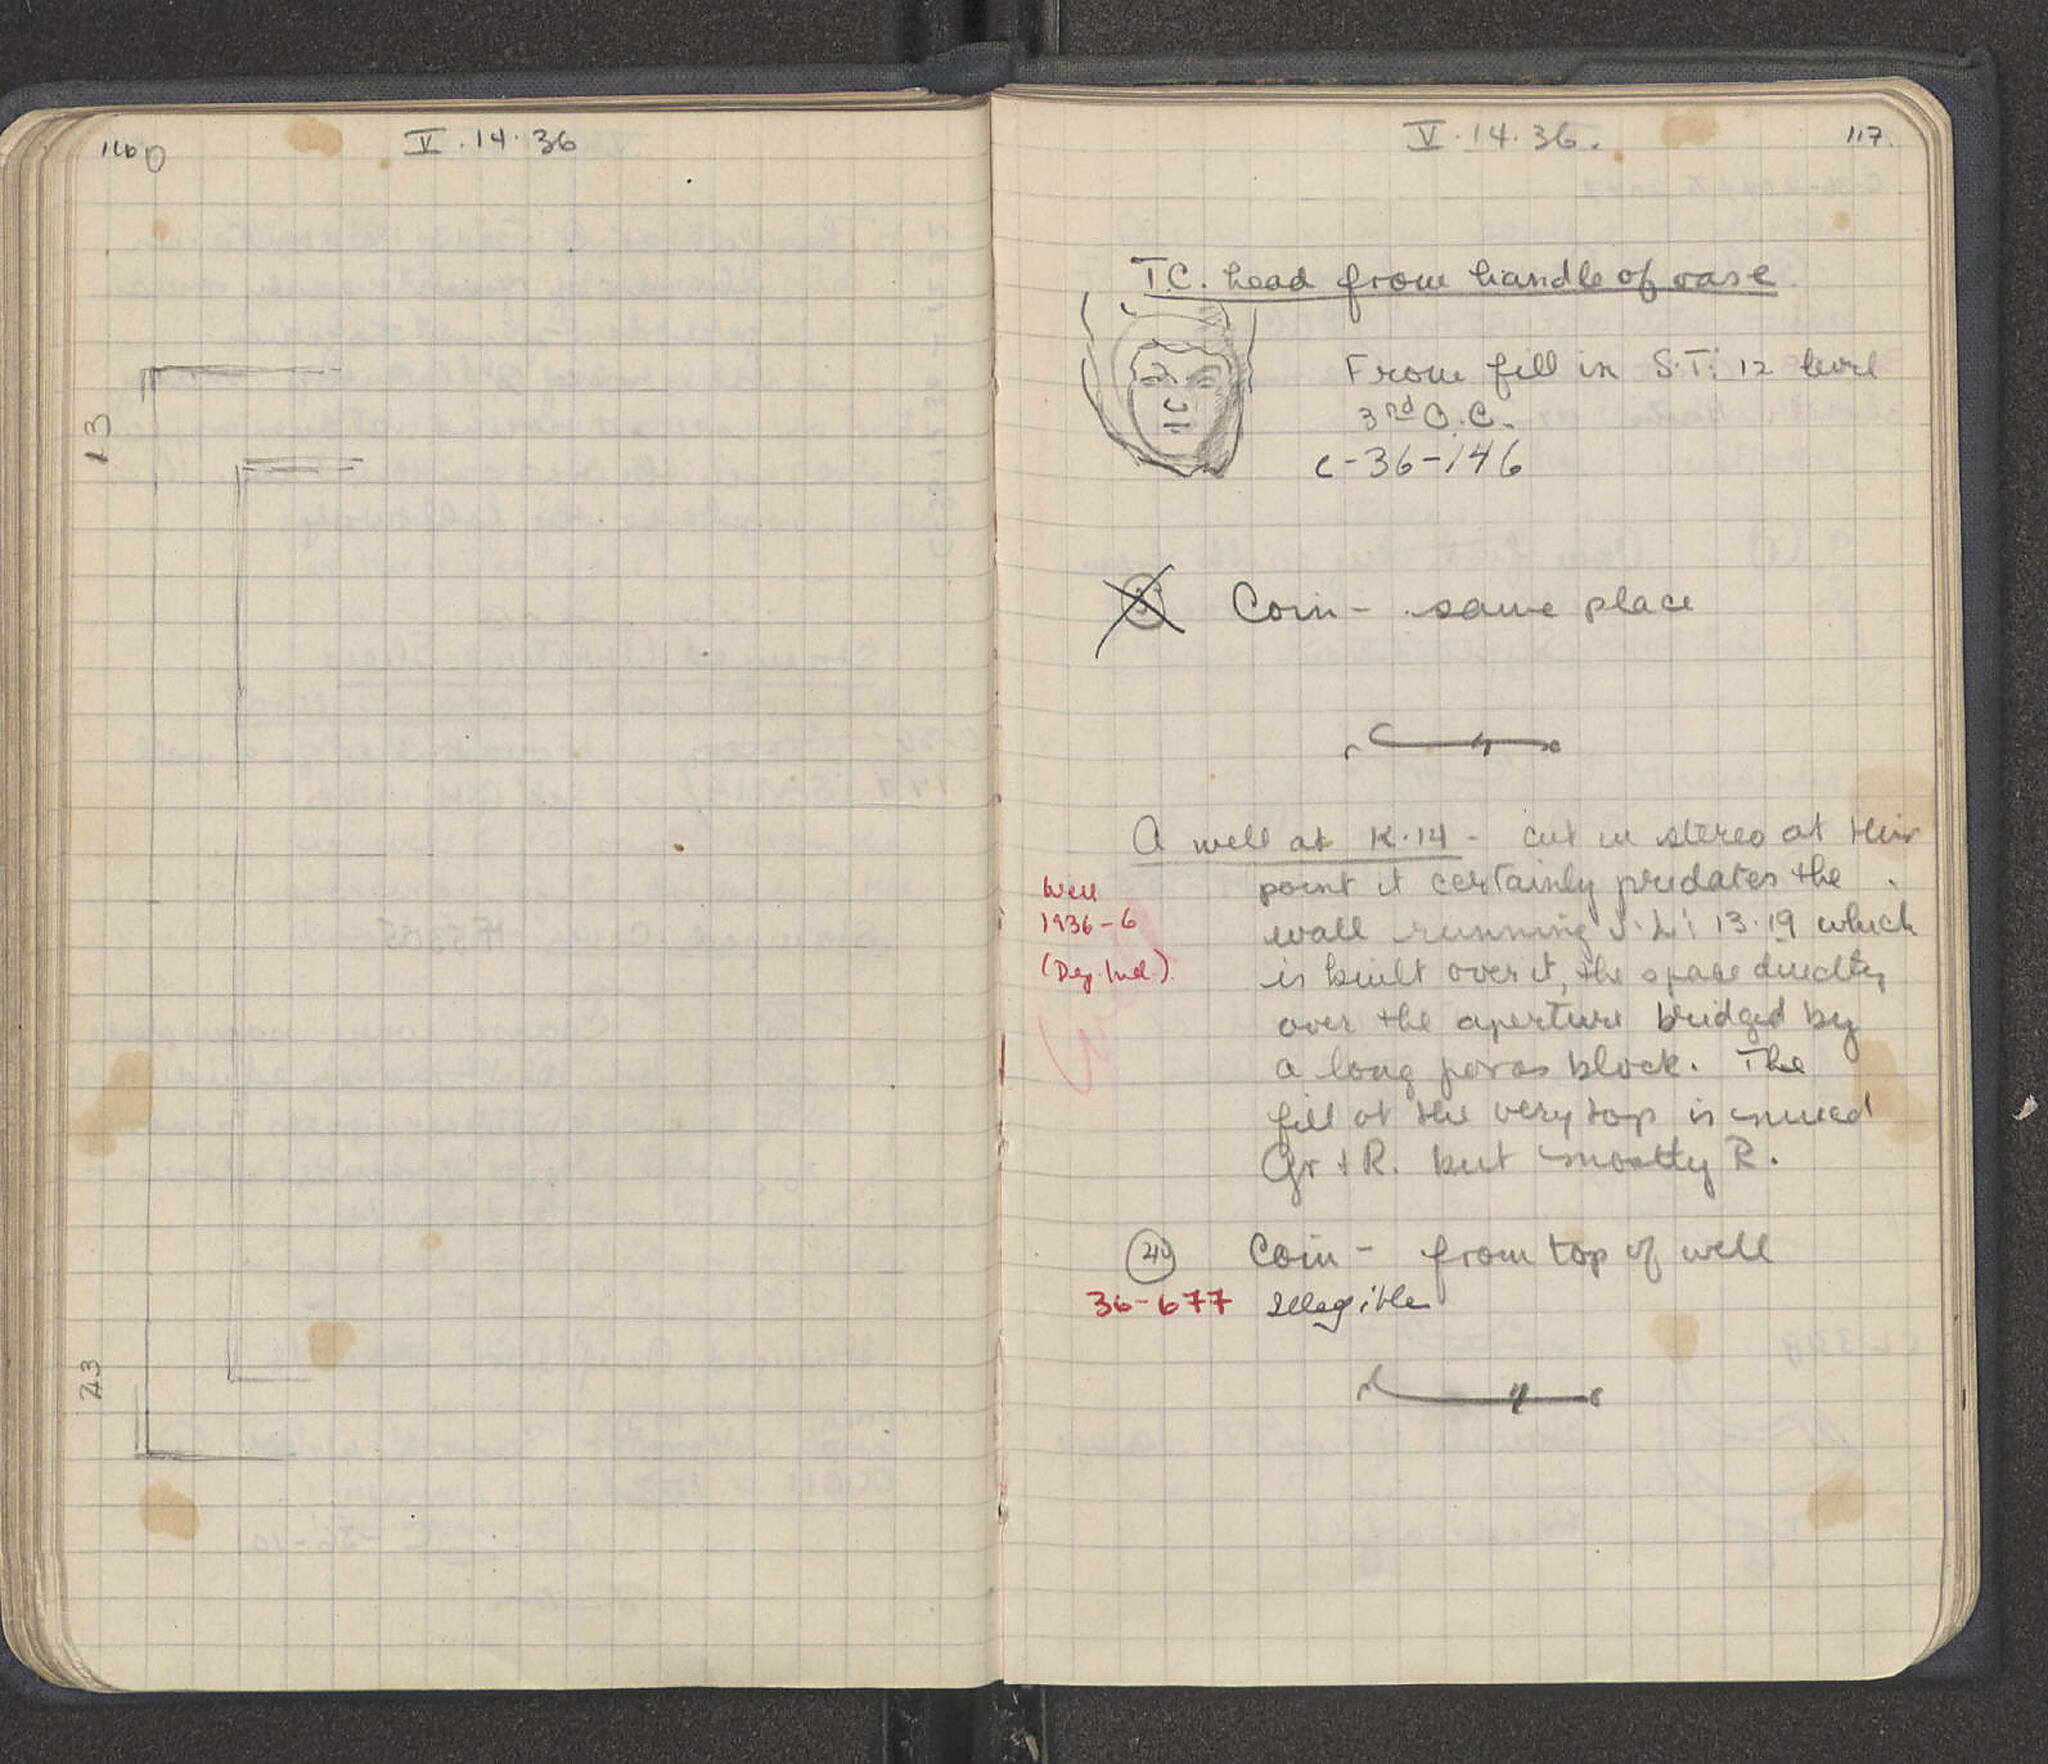 116
V . 14 . 36
13
23
V . 14 . 36 .
117.
T.C. head from handle of vase
From fill in S.T: 12 level
3rd B.C.
C-36-146
Coin - same place
A well at K.14 - cut in stereo at this
point it certainly predates the
wall running : 13.19 which
is built over it, the space directly
over the aperture bridged by
a long poros block. The
fill at the very top is mixed
Gr + R. but mostly R.
Well
1936-6
(Dep. Ind.)
Coin - from top of well
36-677 Illegible